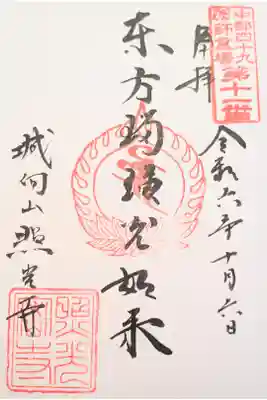 中部四十九
薬師霊場
第十二番
奉拝
令和六年十月六日
东方瑠璃光如来
城向山照光寺